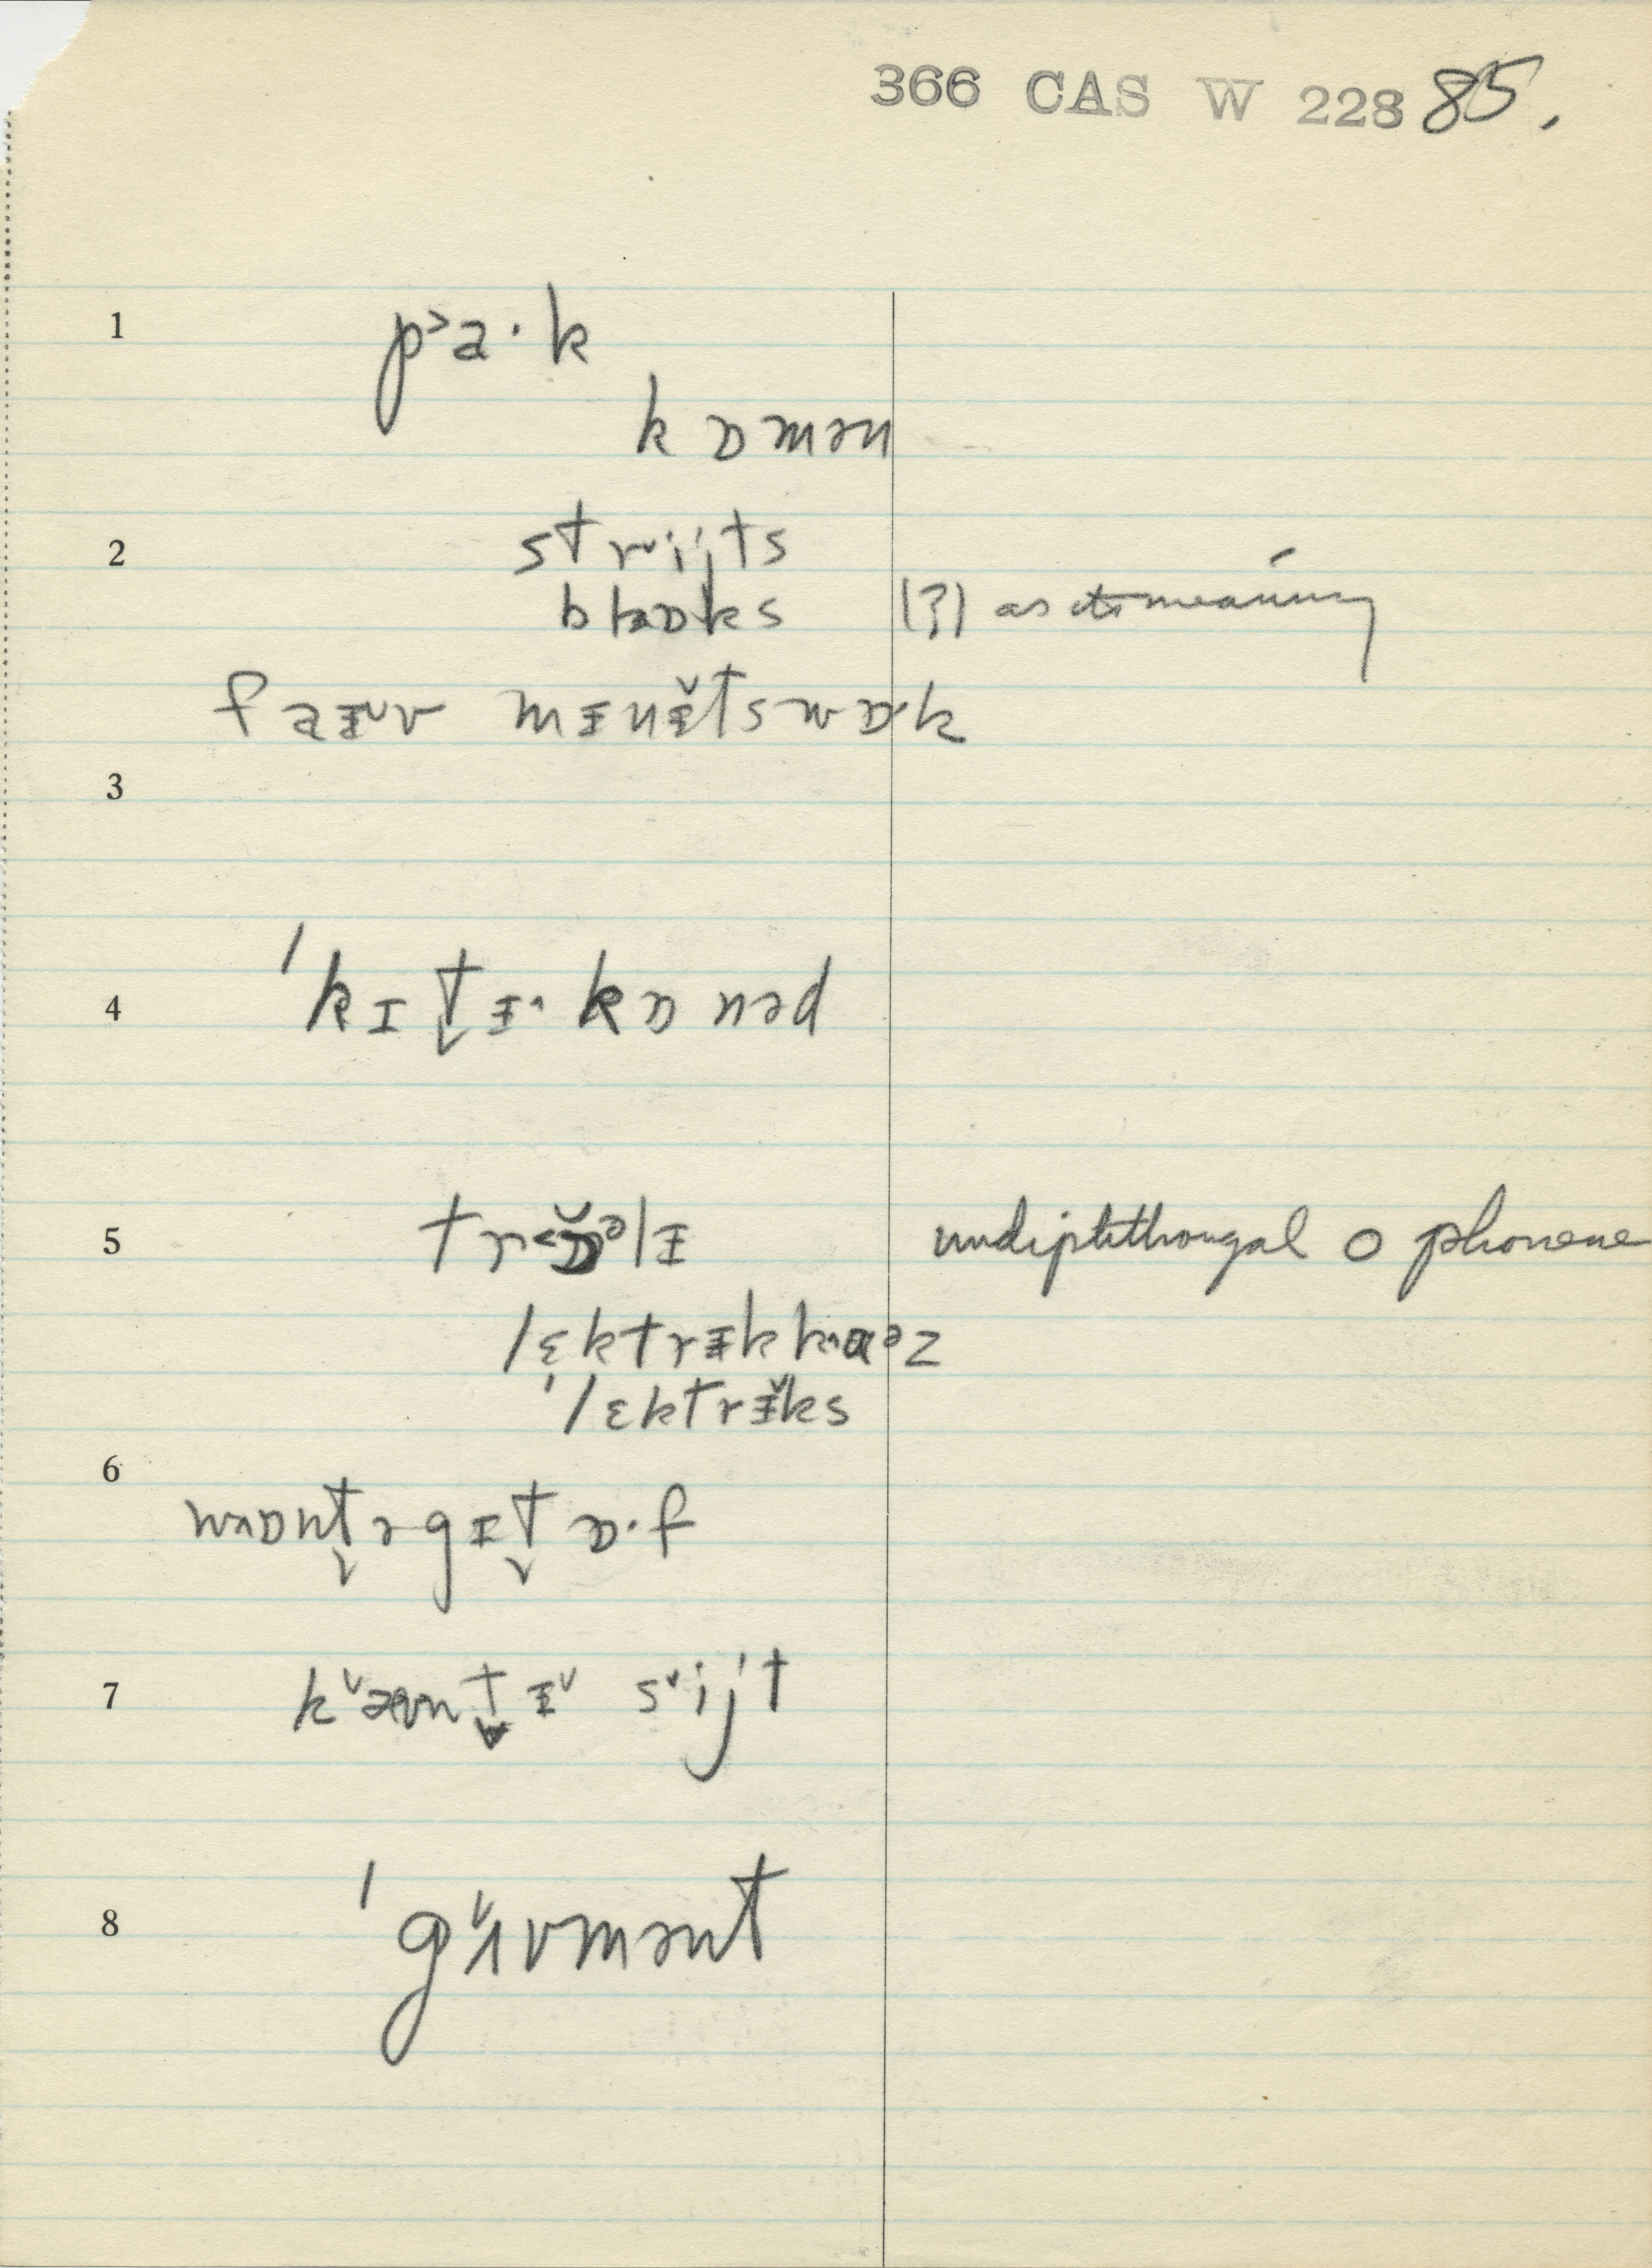 366 CAS W 228 85.
1 p˃a·k
kɒmən
2 strᵛijts
blɒks (?) as to meaning
faᵻ˅v mᵻnᵻ̆tswɒk
3
4 'kɪt̬ᵻ^kɒnəd
5 tr˂ɒ̆ᵊlᵻ undiphthongal o phoneme
lɛktrᵻkk^aᵊz
'lɛktrᵻ̆ks
6
wɒnt̬əgᵻt̬ɒ·f
7 k˅æʊnt̬ᵻ˅ s˅ijt
8 'g˅ʌvmənt